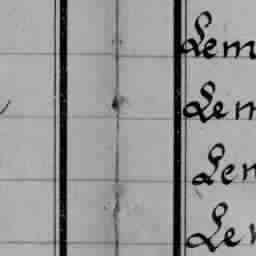 Lem
Lem
Len
Len